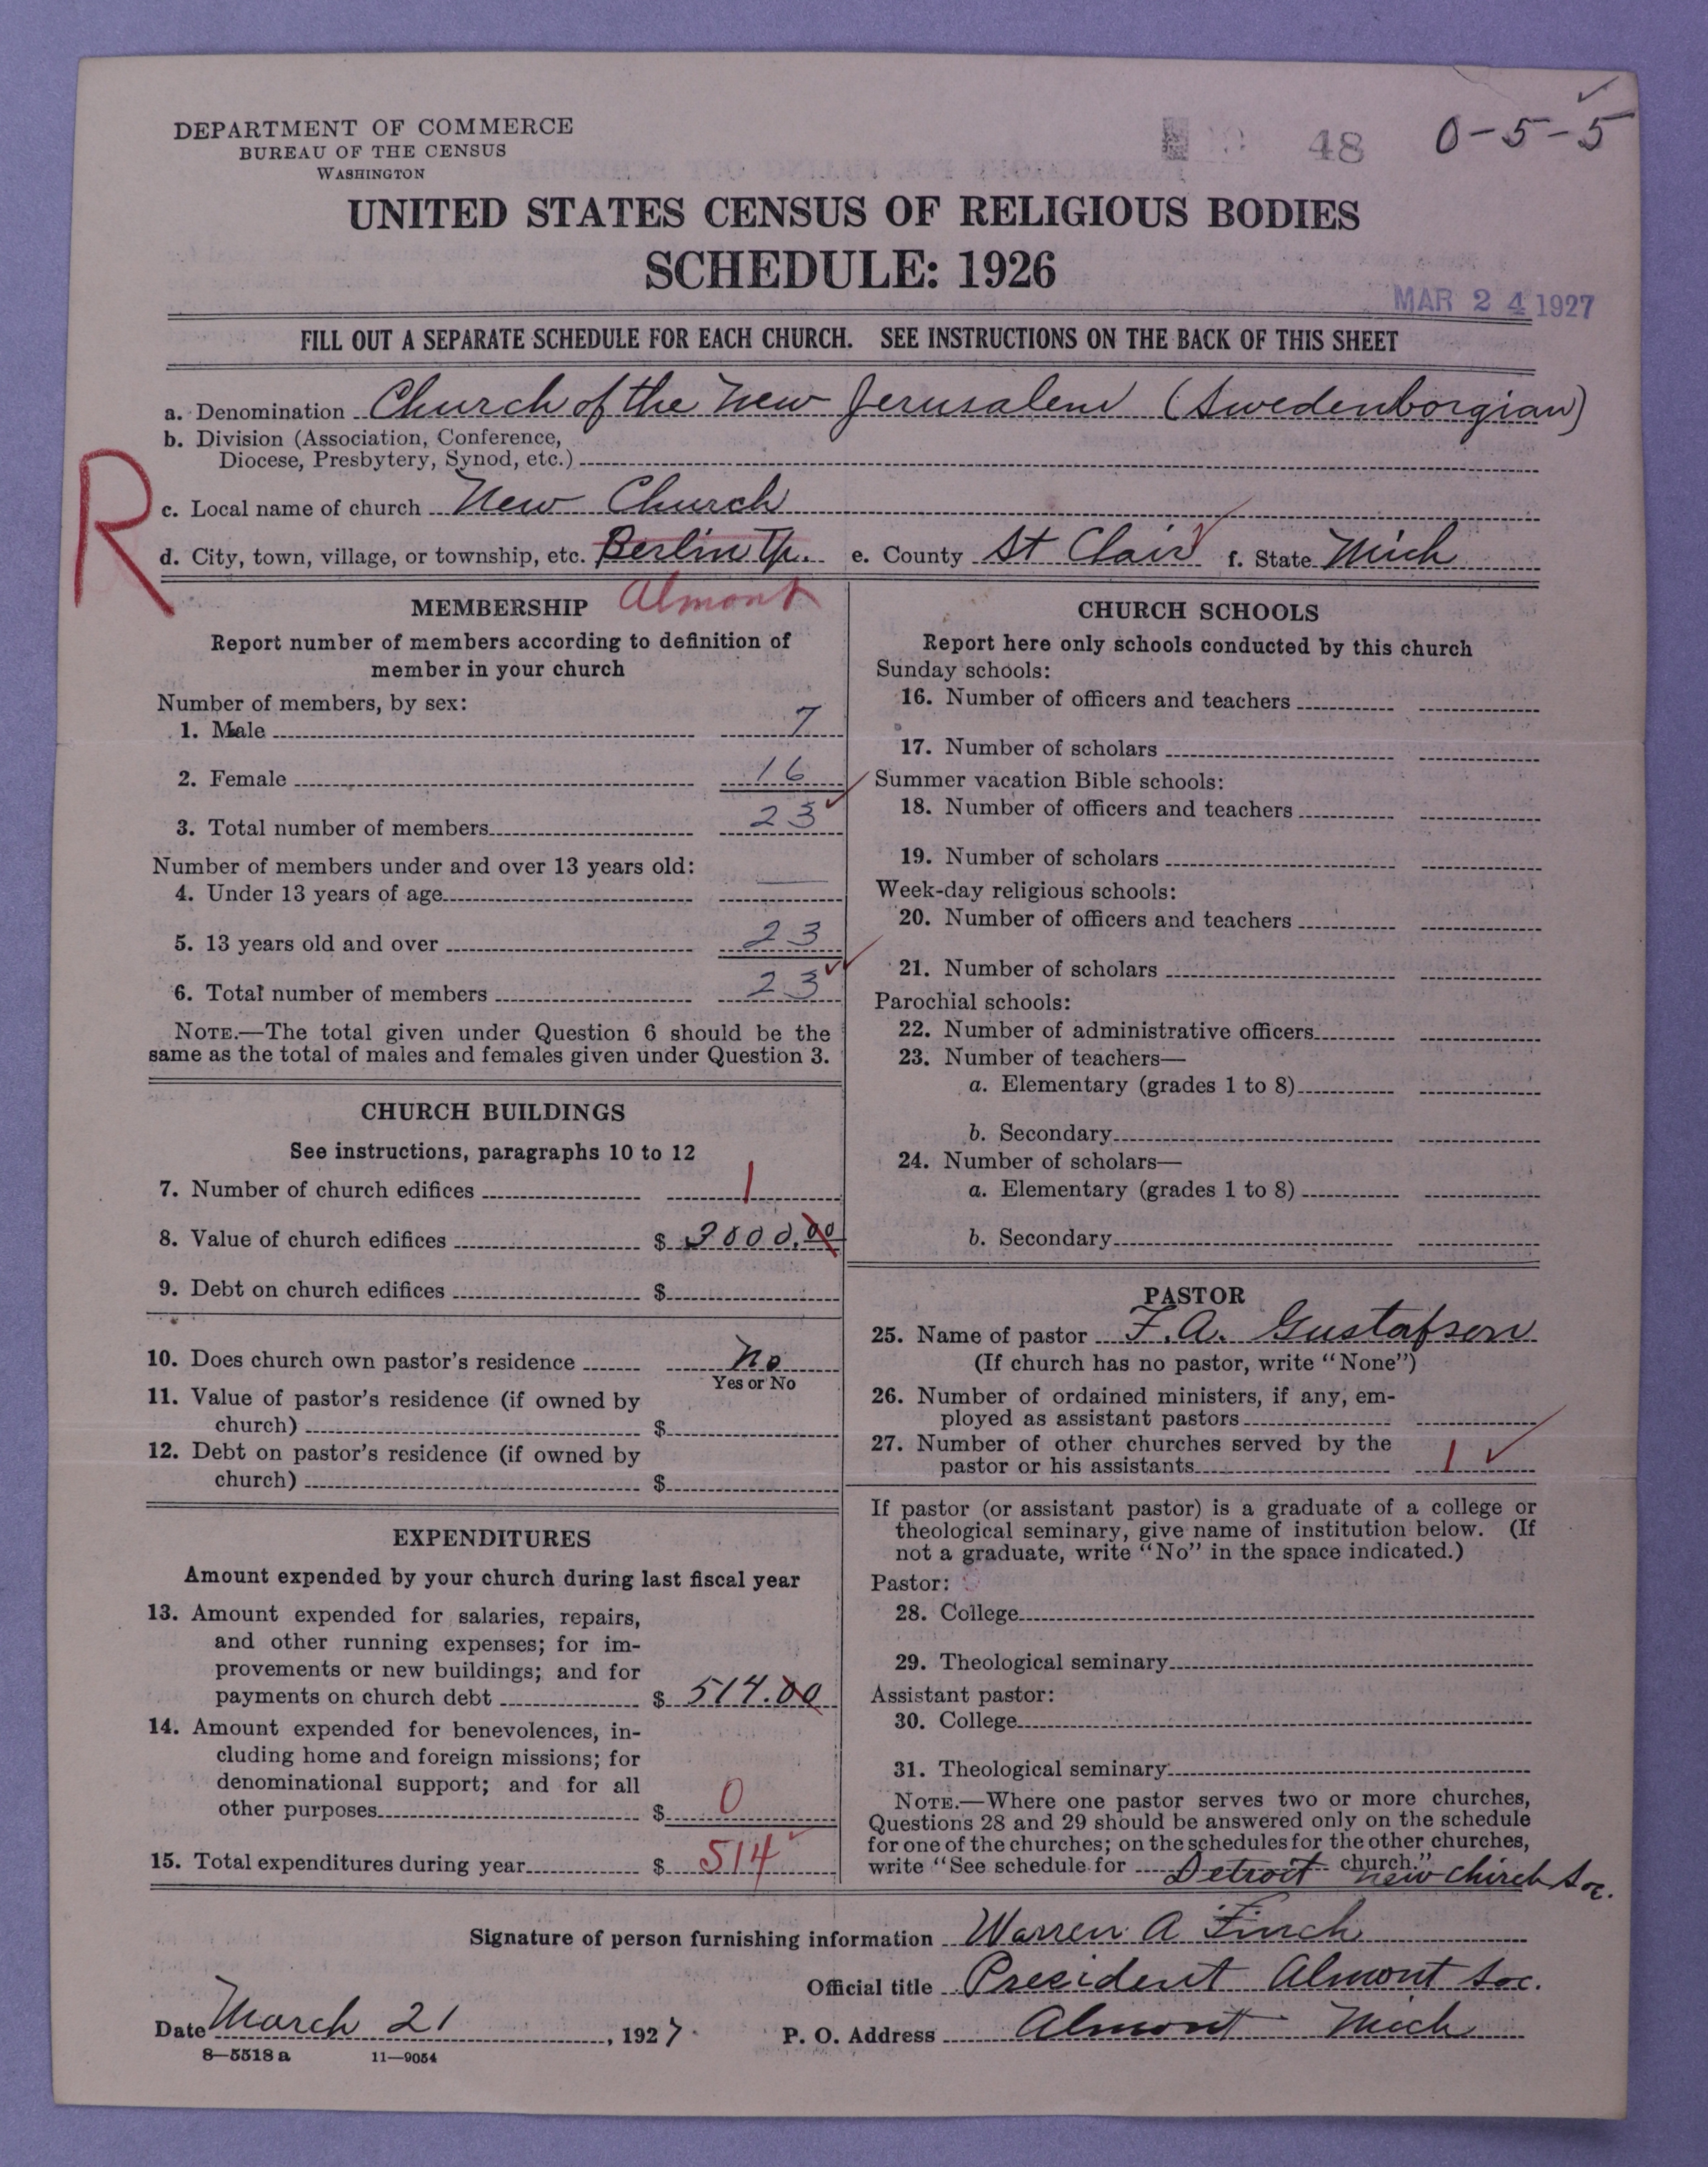 DEPARTMENT OF COMMERCE
BUREAU OF THE CENSUS
WASHINGTON
48
0-5-5
UNITED STATES CENSUS OF RELIGIOUS BODIES
SCHEDULE: 1926
MAR 24 1927
FILL OUT A SEPARATE SCHEDULE FOR EACH CHURCH. SEE INSTRUCTIONS ON THE BACK OF THIS SHEET
a. Denomination Church of the New Jerusalem (Swedenborgian)
b. Division (Association, Conference,
Diocese, Presbytery, Synod, etc.)
R
c. Local name of church New Church
d. City, town, village, or township, etc. Berlin Tp. e. County St Clair f. State Mich
Almont
MEMBERSHIP
Report number of members according to definition of
member in your church
Number of members, by sex:
1. Male 7
2. Female 16
3. Total number of members 23
Number of members under and over 13 years old:
4. Under 13 years of age
5. 13 years old and over 23
6. Total number of members 23
NOTE.—The total given under Question 6 should be the
same as the total of males and females given under Question 3.
CHURCH BUILDINGS
See instructions, paragraphs 10 to 12
7. Number of church edifices 1
8. Value of church edifices $ 3000.00
9. Debt on church edifices $
10. Does church own pastor's residence No
Yes or No
11. Value of pastor's residence (if owned by
church) $
12. Debt on pastor's residence (if owned by
church) $
EXPENDITURES
Amount expended by your church during last fiscal year
13. Amount expended for salaries, repairs,
and other running expenses; for im-
provements or new buildings; and for
payments on church debt $ 514.00
14. Amount expended for benevolences, in-
cluding home and foreign missions; for
denominational support; and for all
other purposes $ 0
15. Total expenditures during year $ 514
CHURCH SCHOOLS
Report here only schools conducted by this church
Sunday schools:
16. Number of officers and teachers
17. Number of scholars
Summer vacation Bible schools:
18. Number of officers and teachers
19. Number of scholars
Week-day religious schools:
20. Number of officers and teachers
21. Number of scholars
Parochial schools:
22. Number of administrative officers
23. Number of teachers—
a. Elementary (grades 1 to 8)
b. Secondary
24. Number of scholars—
a. Elementary (grades 1 to 8)
b. Secondary
PASTOR
25. Name of pastor F. A. Gustafson
(If church has no pastor, write "None")
26. Number of ordained ministers, if any, em-
ployed as assistant pastors
27. Number of other churches served by the
pastor or his assistants 1
If pastor (or assistant pastor) is a graduate of a college or
theological seminary, give name of institution below. (If
not a graduate, write "No" in the space indicated.)
Pastor:
28. College
29. Theological seminary
Assistant pastor:
30. College
31. Theological seminary
NOTE.—Where one pastor serves two or more churches,
Questions 28 and 29 should be answered only on the schedule
for one of the churches; on the schedules for the other churches,
write "See schedule for Detroit church."
New Church Soc.
Signature of person furnishing information Warren A Finch
Official title President Almont Soc.
Date March 21, 1927. P. O. Address Almont Mich
8—5518 a 11—9054